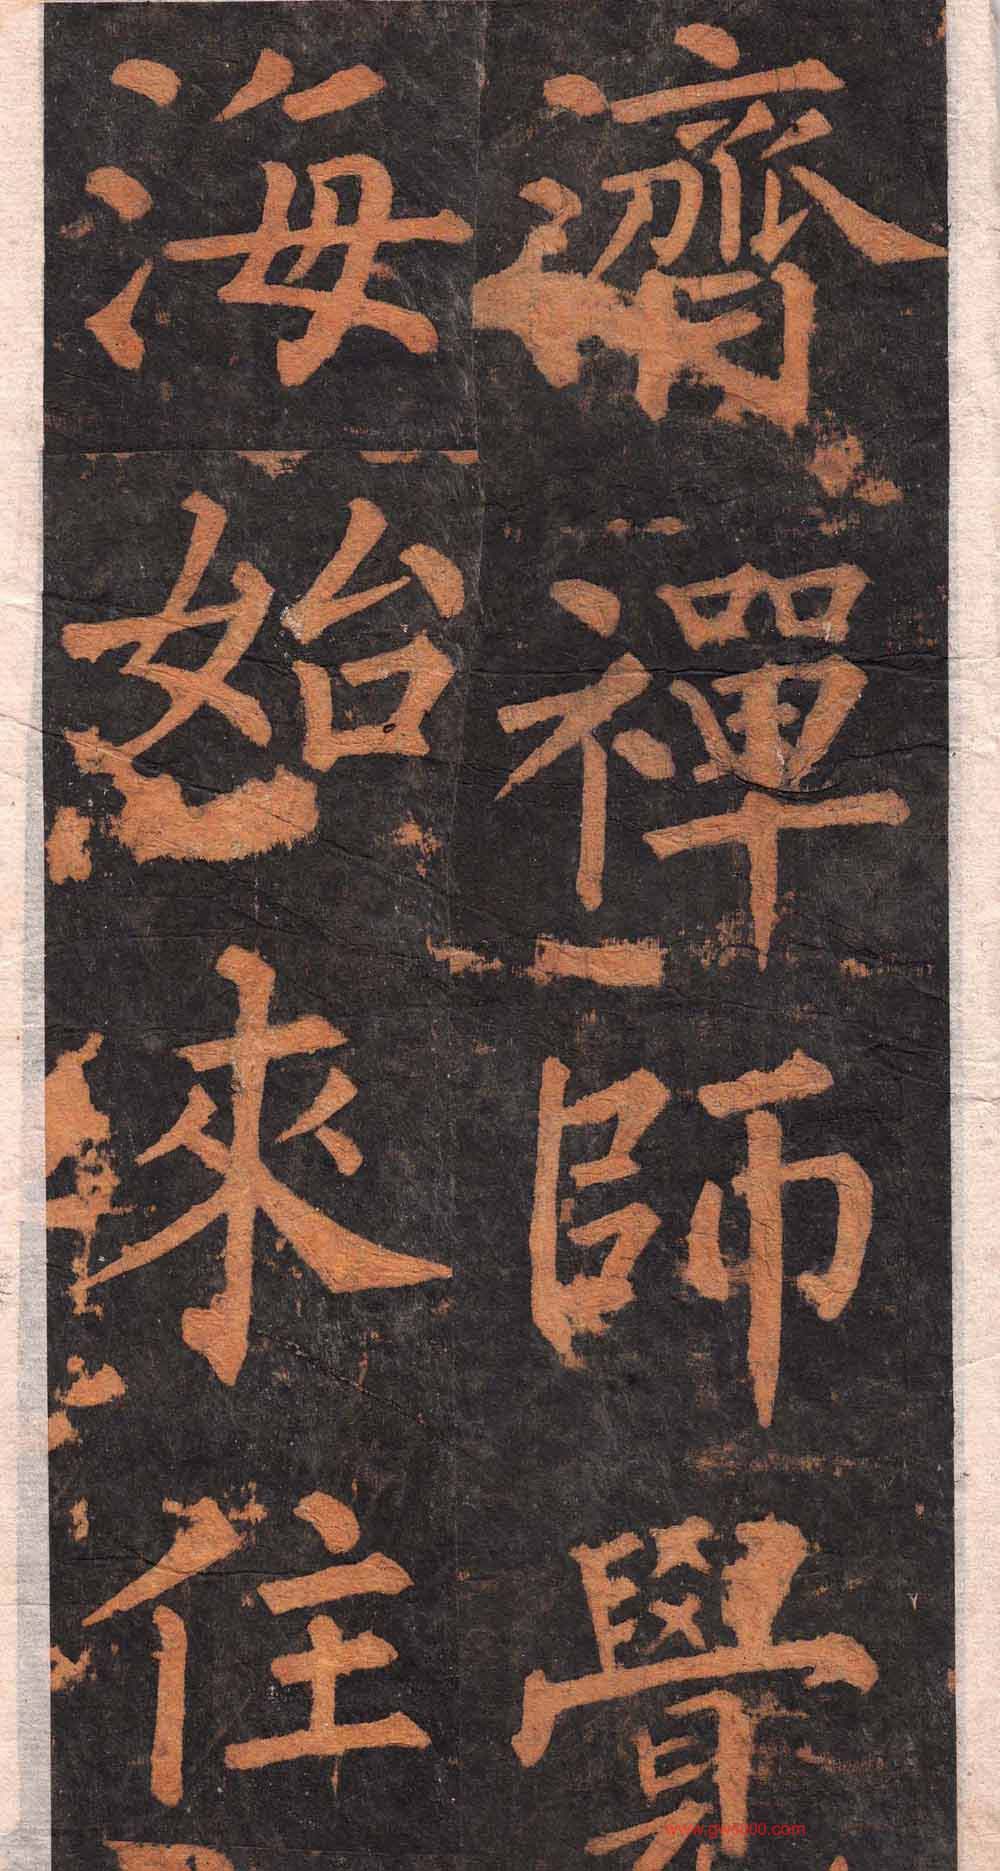 濟禪師覺
海始來住
www.gus000.com